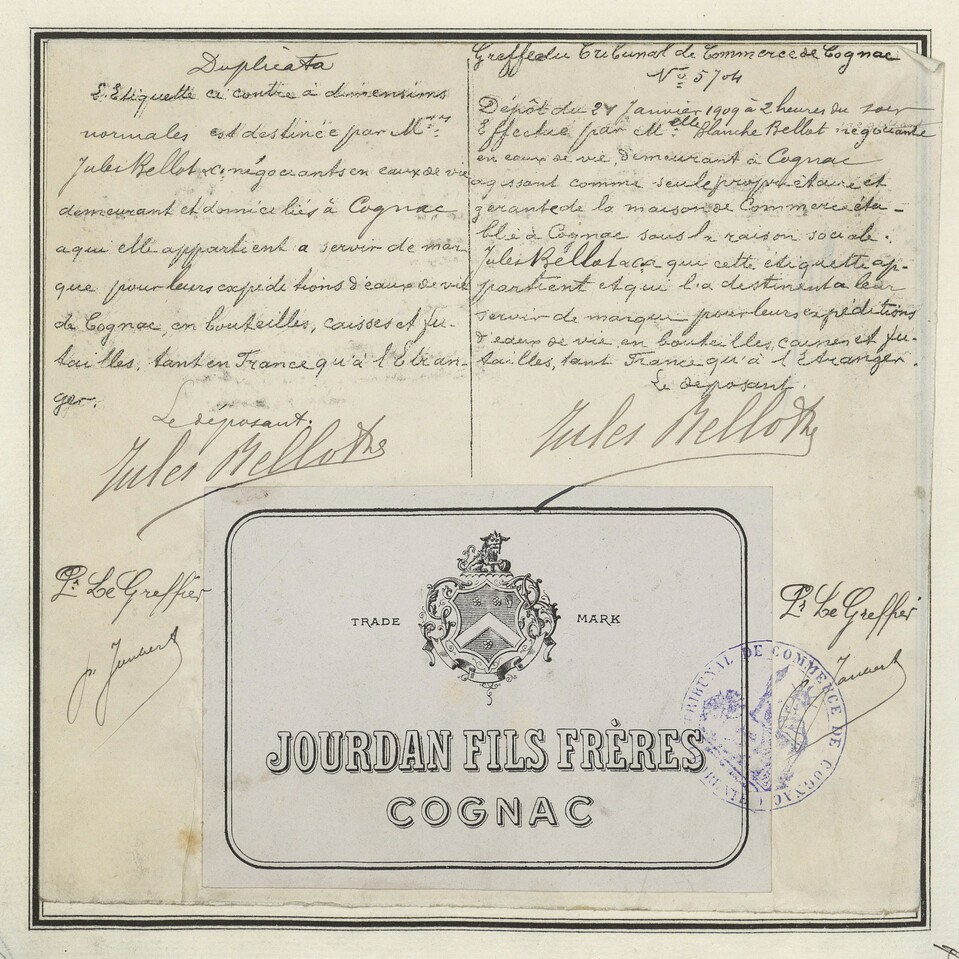 Duplicata
L'Etiquette ci contre à dimensions
normales est destinée par M.rs
Jules Bellot & Co. négociants en eaux de vie
demeurant et domiciliés à Cognac
a qui elle appartient a servir de mar-
que pour leurs expéditions d'eaux de vie
de Cognac, en bouteilles, caisses et fu-
tailles, tant en France qu'à l'Etran-
ger.
Le déposant.
Jules Bellot & Co
Pr Le Greffier
Greffe du Tribunal de Commerce de Cognac
No 5704
Dépôt du 27 Janvier 1909 à 2 heures du soir
Effectué par Melle Blanche Bellot négociante
en eaux de vie, demeurant à Cognac
agissant comme seule propriétaire et
gérante de la maison de Commerce éta-
blie à Cognac sous la raison sociale.
Jules Bellot & Co a qui cette etiquette ap-
partient et qui l'a destinent a leur
servir de marque pour leurs expéditions
d'eaux de vie en bouteilles, caisses et fu-
tailles, tant France qu'à l'Etranger.
Le déposant.
Jules Bellot & Co
Pr Le Greffier
TRADE MARK
JOURDAN FILS FRÈRES
COGNAC
TRIBUNAL DE COMMERCE DE COGNAC